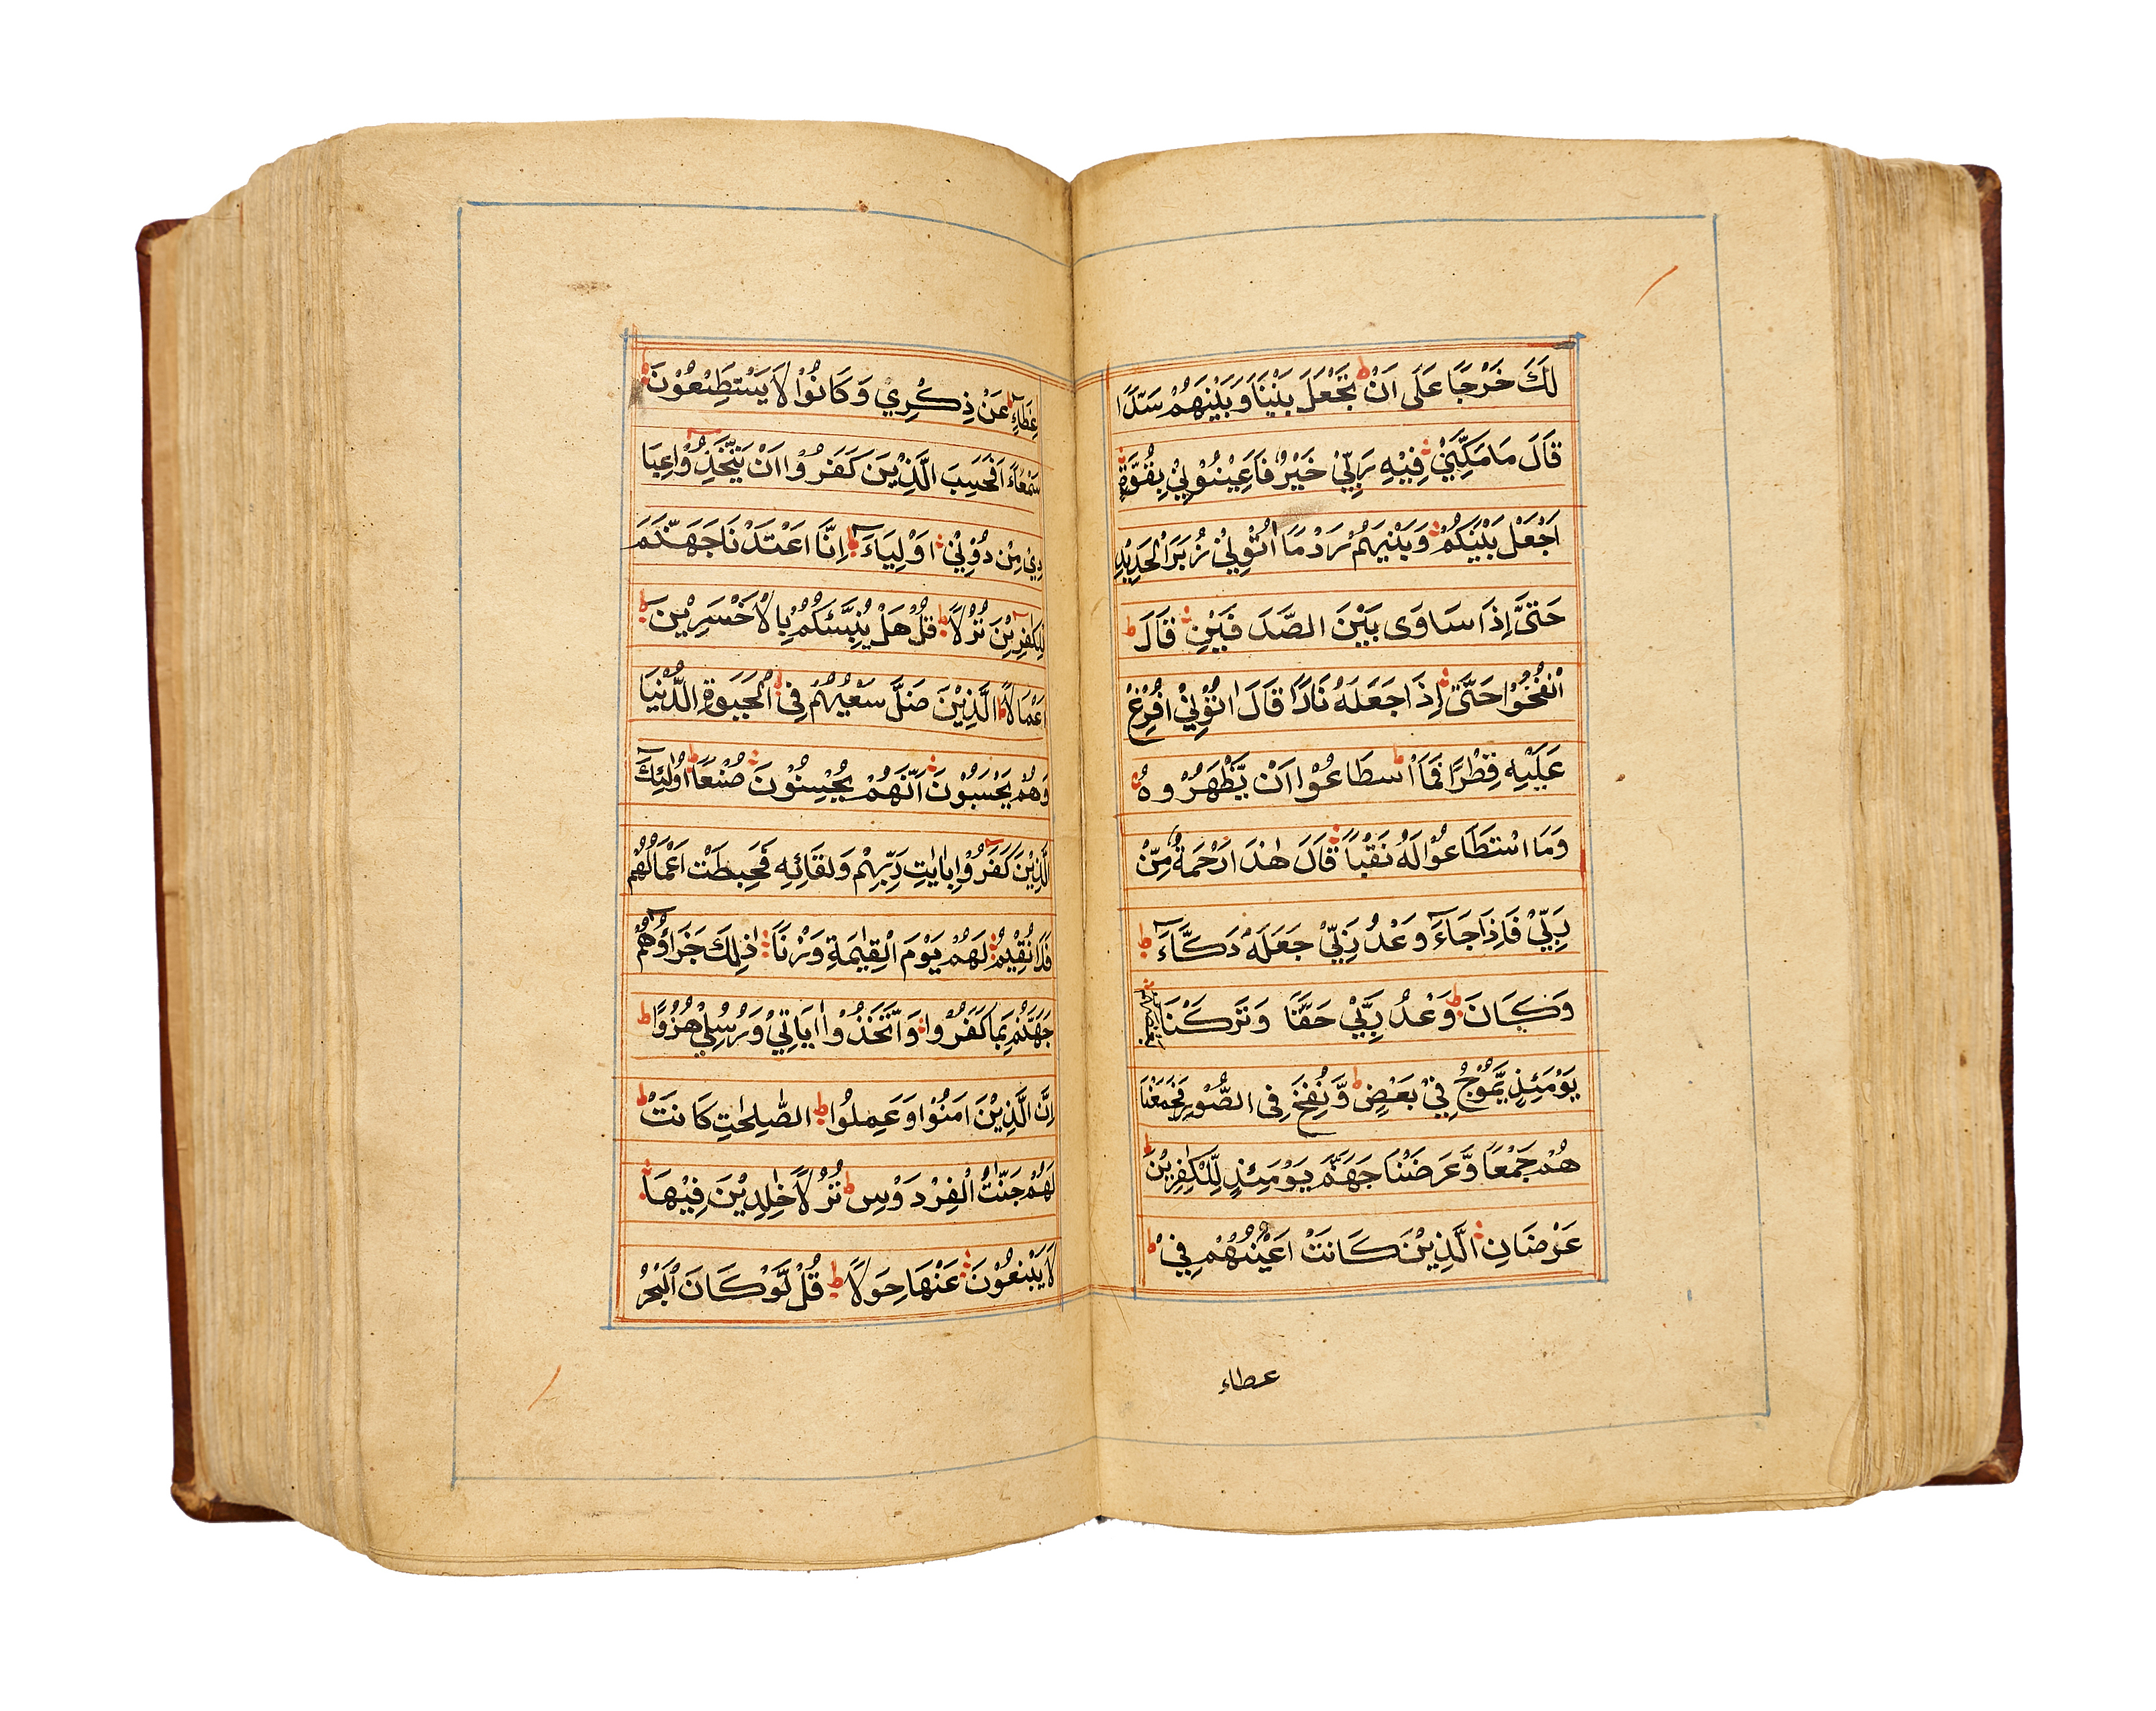 لَكَ خَرْجًا عَلَى اَنْ تَجْعَلَ بَيْنَنَا وَبَيْنَهُمْ سَدًّا
قَالَ مَا مَكَّنِّيْ فِيْهِ رَبِّيْ خَيْرٌ فَاَعِيْنُوْنِيْ بِقُوَّةٍ
اَجْعَلْ بَيْنَكُمْ وَبَيْنَهُمْ رَدْمًا اٰتُوْنِيْ زُبَرَ الْحَدِيْدِ
حَتّٰى اِذَا سَاوَى بَيْنَ الصَّدَفَيْنِ قَالَ ط
انْفُخُوْا حَتّٰى اِذَا جَعَلَهُ نَارًا قَالَ اٰتُوْنِيْ اُفْرِغْ
عَلَيْهِ قِطْرًا فَمَا اسْطَاعُوْا اَنْ يَّظْهَرُوْهُ
وَمَا اسْتَطَاعُوْا لَهُ نَقْبًا قَالَ هٰذَا رَحْمَةٌ مِّنْ
رَبِّيْ فَاِذَا جَاءَ وَعْدُ رَبِّيْ جَعَلَهُ دَكَّاءَ ط
وَكَانَ وَعْدُ رَبِّيْ حَقًّا وَتَرَكْنَا بعضهم
يَوْمَئِذٍ يَّمُوْجُ فِيْ بَعْضٍ وَّنُفِخَ فِى الصُّوْرِ فَجَمَعْنَا
هُمْ جَمْعًا وَّعَرَضْنَا جَهَنَّمَ يَوْمَئِذٍ لِّلْكٰفِرِيْنَ
عَرْضَانِ الَّذِيْنَ كَانَتْ اَعْيُنُهُمْ فِيْ
عطاء
غِطَاءٍ عَنْ ذِكْرِيْ وَكَانُوْا لَا يَسْتَطِيْعُوْنَ
سَمْعًا اَفَحَسِبَ الَّذِيْنَ كَفَرُوْا اَنْ يَّتَّخِذُوْا عِبَا
دِيْ مِنْ دُوْنِيْ اَوْلِيَاءَ ط اِنَّا اَعْتَدْنَا جَهَنَّمَ
لِلْكٰفِرِيْنَ نُزُلًا ط قُلْ هَلْ نُنَبِّئُكُمْ بِالْاَخْسَرِيْنَ
اَعْمَالًا الَّذِيْنَ ضَلَّ سَعْيُهُمْ فِى الْحَيٰوةِ الدُّنْيَا
وَهُمْ يَحْسَبُوْنَ اَنَّهُمْ يُحْسِنُوْنَ صُنْعًا اُولٰئِكَ
الَّذِيْنَ كَفَرُوْا بِاٰيٰتِ رَبِّهِمْ وَلِقَائِهِ فَحَبِطَتْ اَعْمَالُهُمْ
فَلَا نُقِيْمُ لَهُمْ يَوْمَ الْقِيٰمَةِ وَزْنًا ذٰلِكَ جَزَاؤُهُمْ
جَهَنَّمُ بِمَا كَفَرُوْا وَاتَّخَذُوْا اٰيَاتِيْ وَرُسُلِيْ هُزُوًا ط
اِنَّ الَّذِيْنَ اٰمَنُوْا وَعَمِلُوا الصّٰلِحٰتِ كَانَتْ ط
لَهُمْ جَنّٰتُ الْفِرْدَوْسِ نُزُلًا خٰلِدِيْنَ فِيْهَا
لَا يَبْغُوْنَ عَنْهَا حِوَلًا ط قُلْ لَّوْ كَانَ الْبَحْرُ